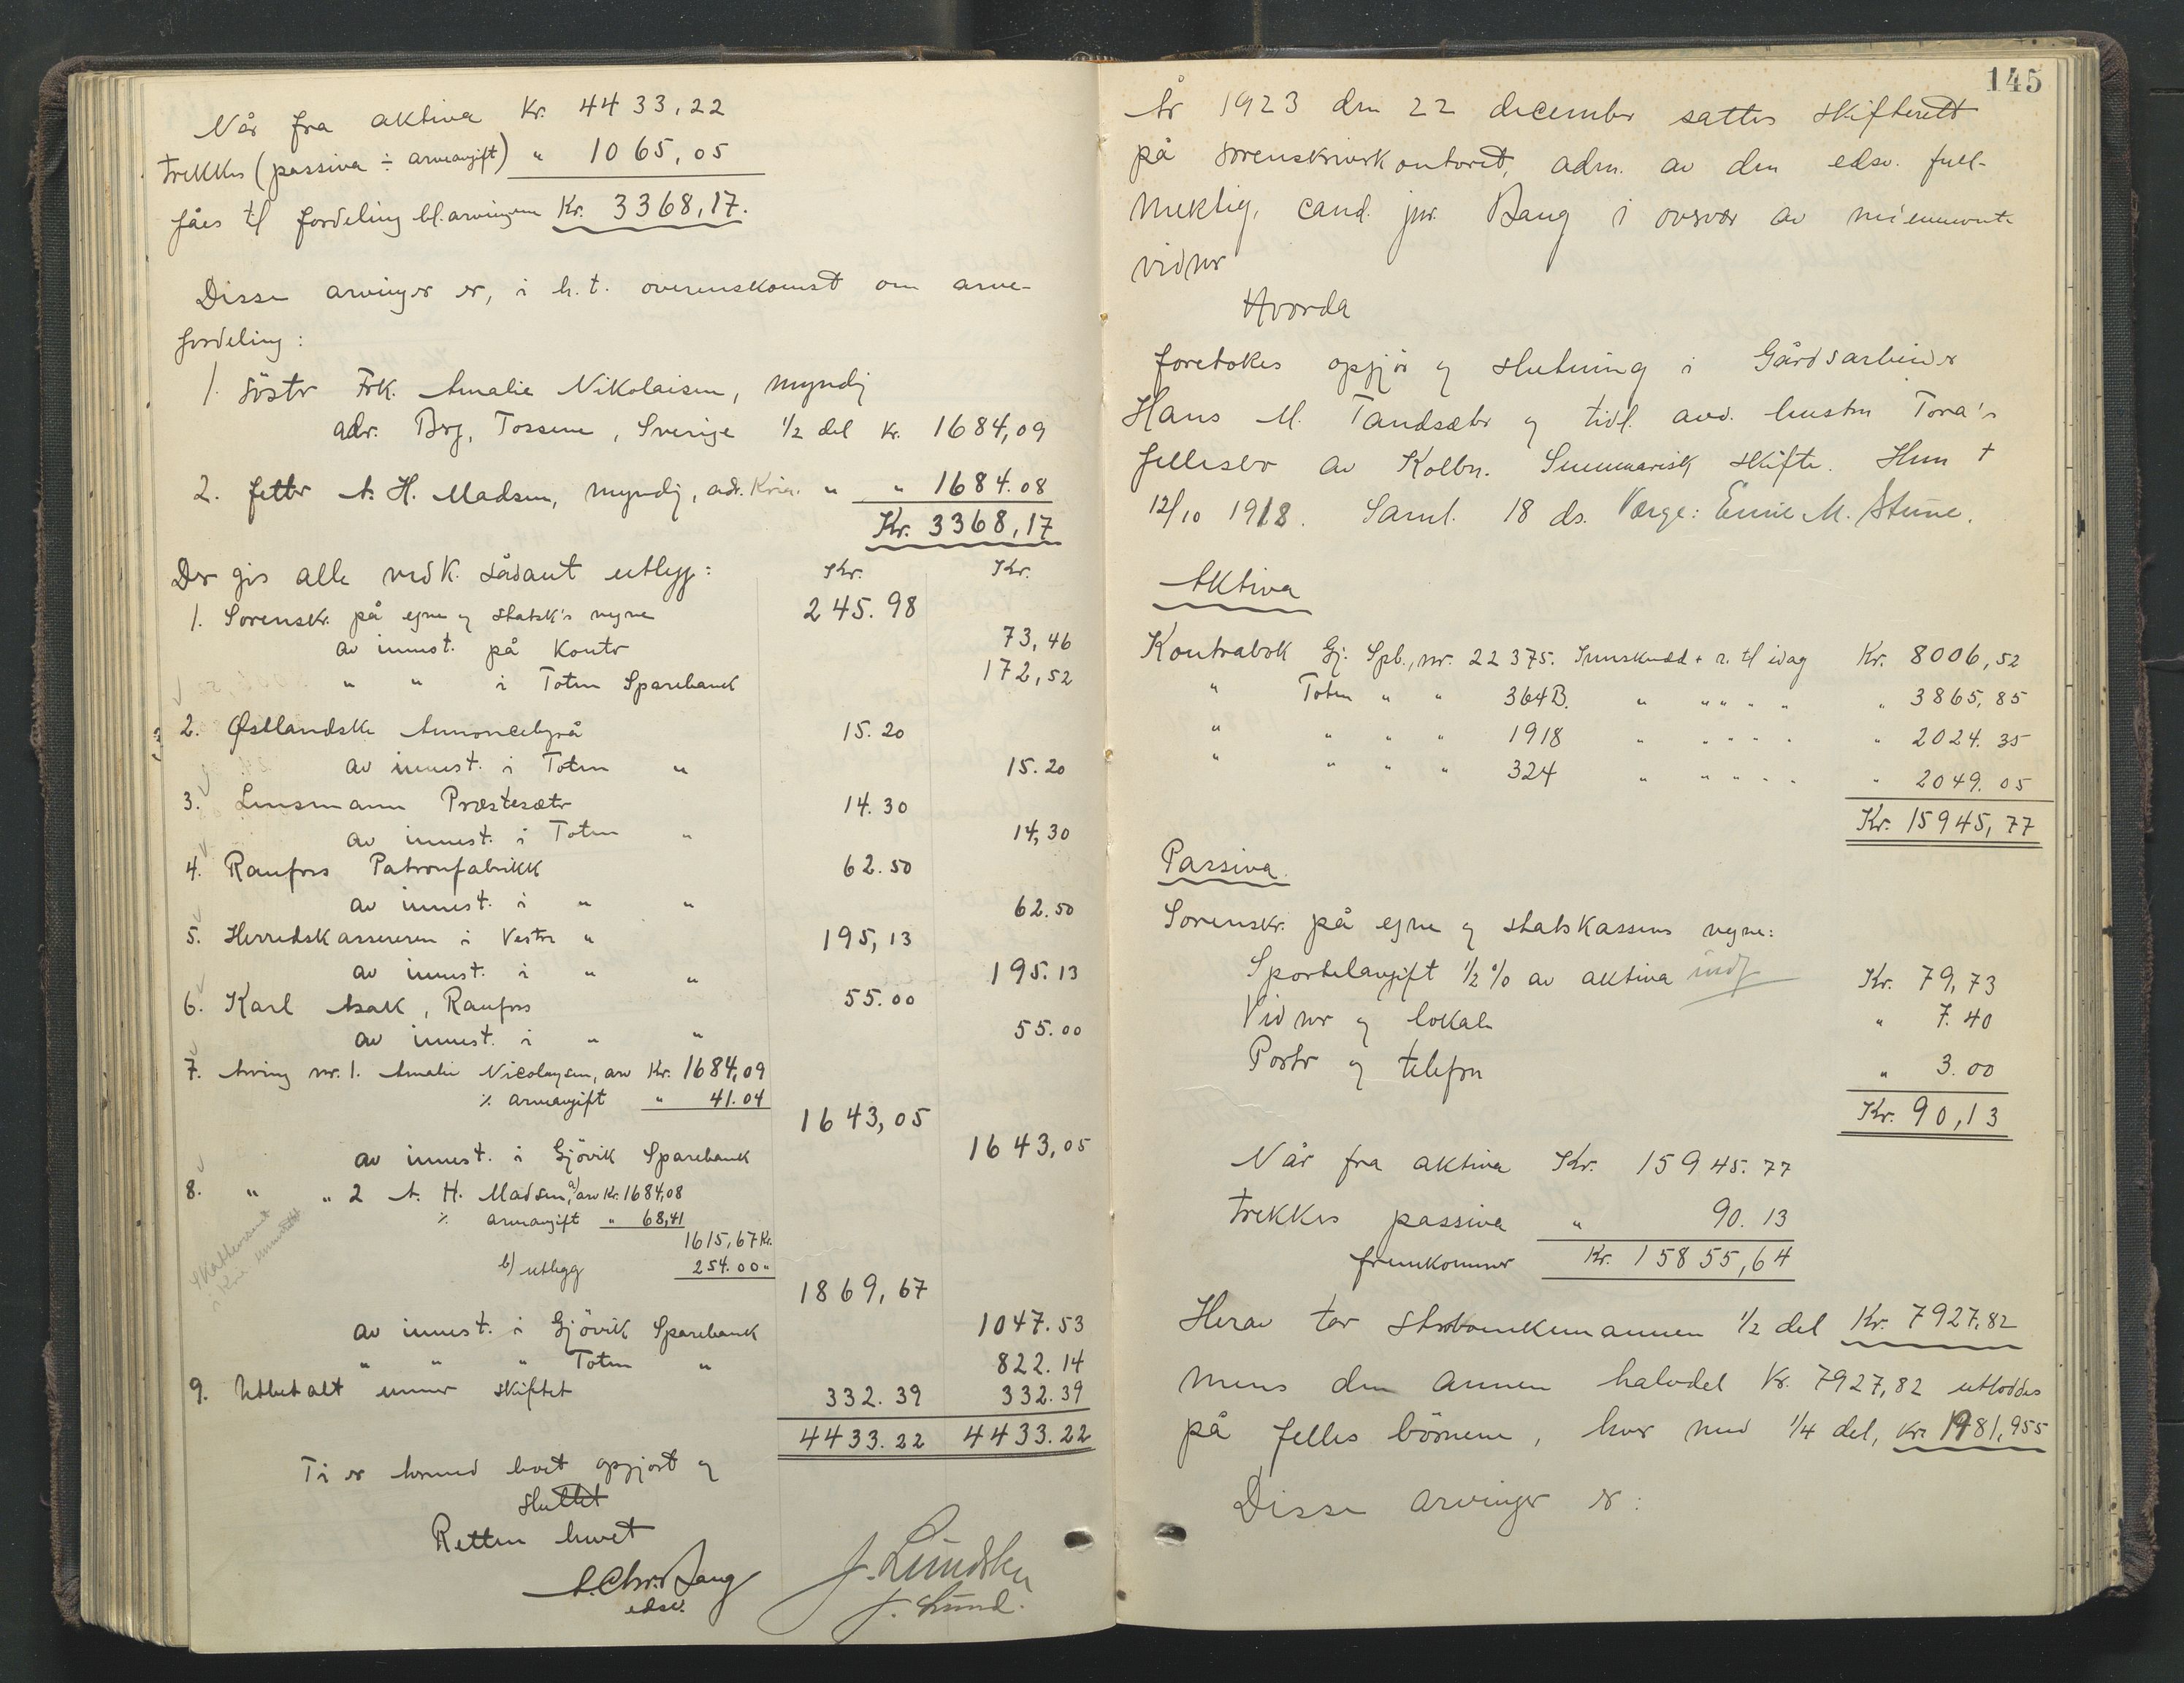 Når fra aktiva Kr. 4433,22
trekkes (passiva ÷ arveavgift) " 1065,05
fåes til fordeling bl. arvingene Kr. 3368,17.
Disse arvinger er, i h.t. overenskomst om arve-
fordeling:
1. Söster Frk. Amalie Nikolaisen, myndig
adr. Berg, Tossene, Sverige 1/2 del Kr. 1684,09
2. fetter A. H. Madsen, myndig, adr. Kria. " " 1684.08
Kr. 3368,17
Der gis alle vedk. sådant utlegg: Kr. Kr.
1. Sorenskr. på egne og statsk's vegne 245.98
av innest. på kontor 73,46
" " i Toten Sparebank 172,52
2. Østlandske Annoncebyrå 15.20
av innest. i Toten " 15.20
3. Lensmann Præstesæter 14.30
av innest. i Toten " 14,30
4. Raufoss Patronfabrikk 62.50
av innest. i " " 62.50
5. Herredskassereren i Vestre " 195,13
av innest. i " " 195.13
6. Karl Aasak, Raufoss 55.00
av innest. i " " 55.00
7. Arving nr. 1. Amalie Nicolaysen, arv Kr. 1684,09
% arveavgift " 41.04
1643,05
av innest. i Gjövik Sparebank 1643,05
8. " " 2 A. H. Madsen, a) arv Kr. 1684,08
% arveavgift " 68,41
1615,67 Kr.
b) utlegg 254.00 "
1869,67
Skattemant
i Kria
av innest. i Gjövik Sparebank 1047.53
" " " Toten " 822.14
9. Utbetalt under skiftet 332.39 332.39
4433.22 4433.22
Ti er hermed boet opgjort og
sluttet
Retten hevet
A. Chr. Bang
edsv.
J. Lundsten
J. Lund.
145
År 1923 den 22 december sattes skifterett
på sorenskriverkontoret, adm. av den edsv. full-
mektig, cand. jur. Bang i overvær av nedennevnte
vidner
Hvorda
foretokes opgjör og slutning i Gårdsarbeider
Hans M. Tandsæter og tidl. avd. hustru Tora's
fellesbo av Kolbu. Summarisk skifte. Hun †
12/10 1918. Saml. 18 ds. Værge: Emil M. Stune.
Aktiva
Kontrabok Gj. Spb., nr. 22375. Innskudd + r. til idag Kr. 8006,52
" Toten " " 364B. " " " " " " 3865,85
" " " " 1918 " " " " " " 2024.35
" " " " 324 " " " " " " 2049.05
Kr. 15945,77
Passiva.
Sorenskr. på egne og statskassens vegne:
Sportelavgift 1/2 % av aktiva indf Kr. 79,73
Vidner og lokale " 7.40
Porto og telefon " 3.00
Kr. 90,13
Når fra aktiva Kr. 15945.77
trekkes passiva " 90.13
fremkommer Kr. 15855,64
Herav tar storboenkemannen 1/2 del Kr. 7927,82
mens den annen halvdel Kr. 7927,82 utloddes
på felles börnene, hver med 1/4 del, Kr. 1981,955
Disse arvinger er: